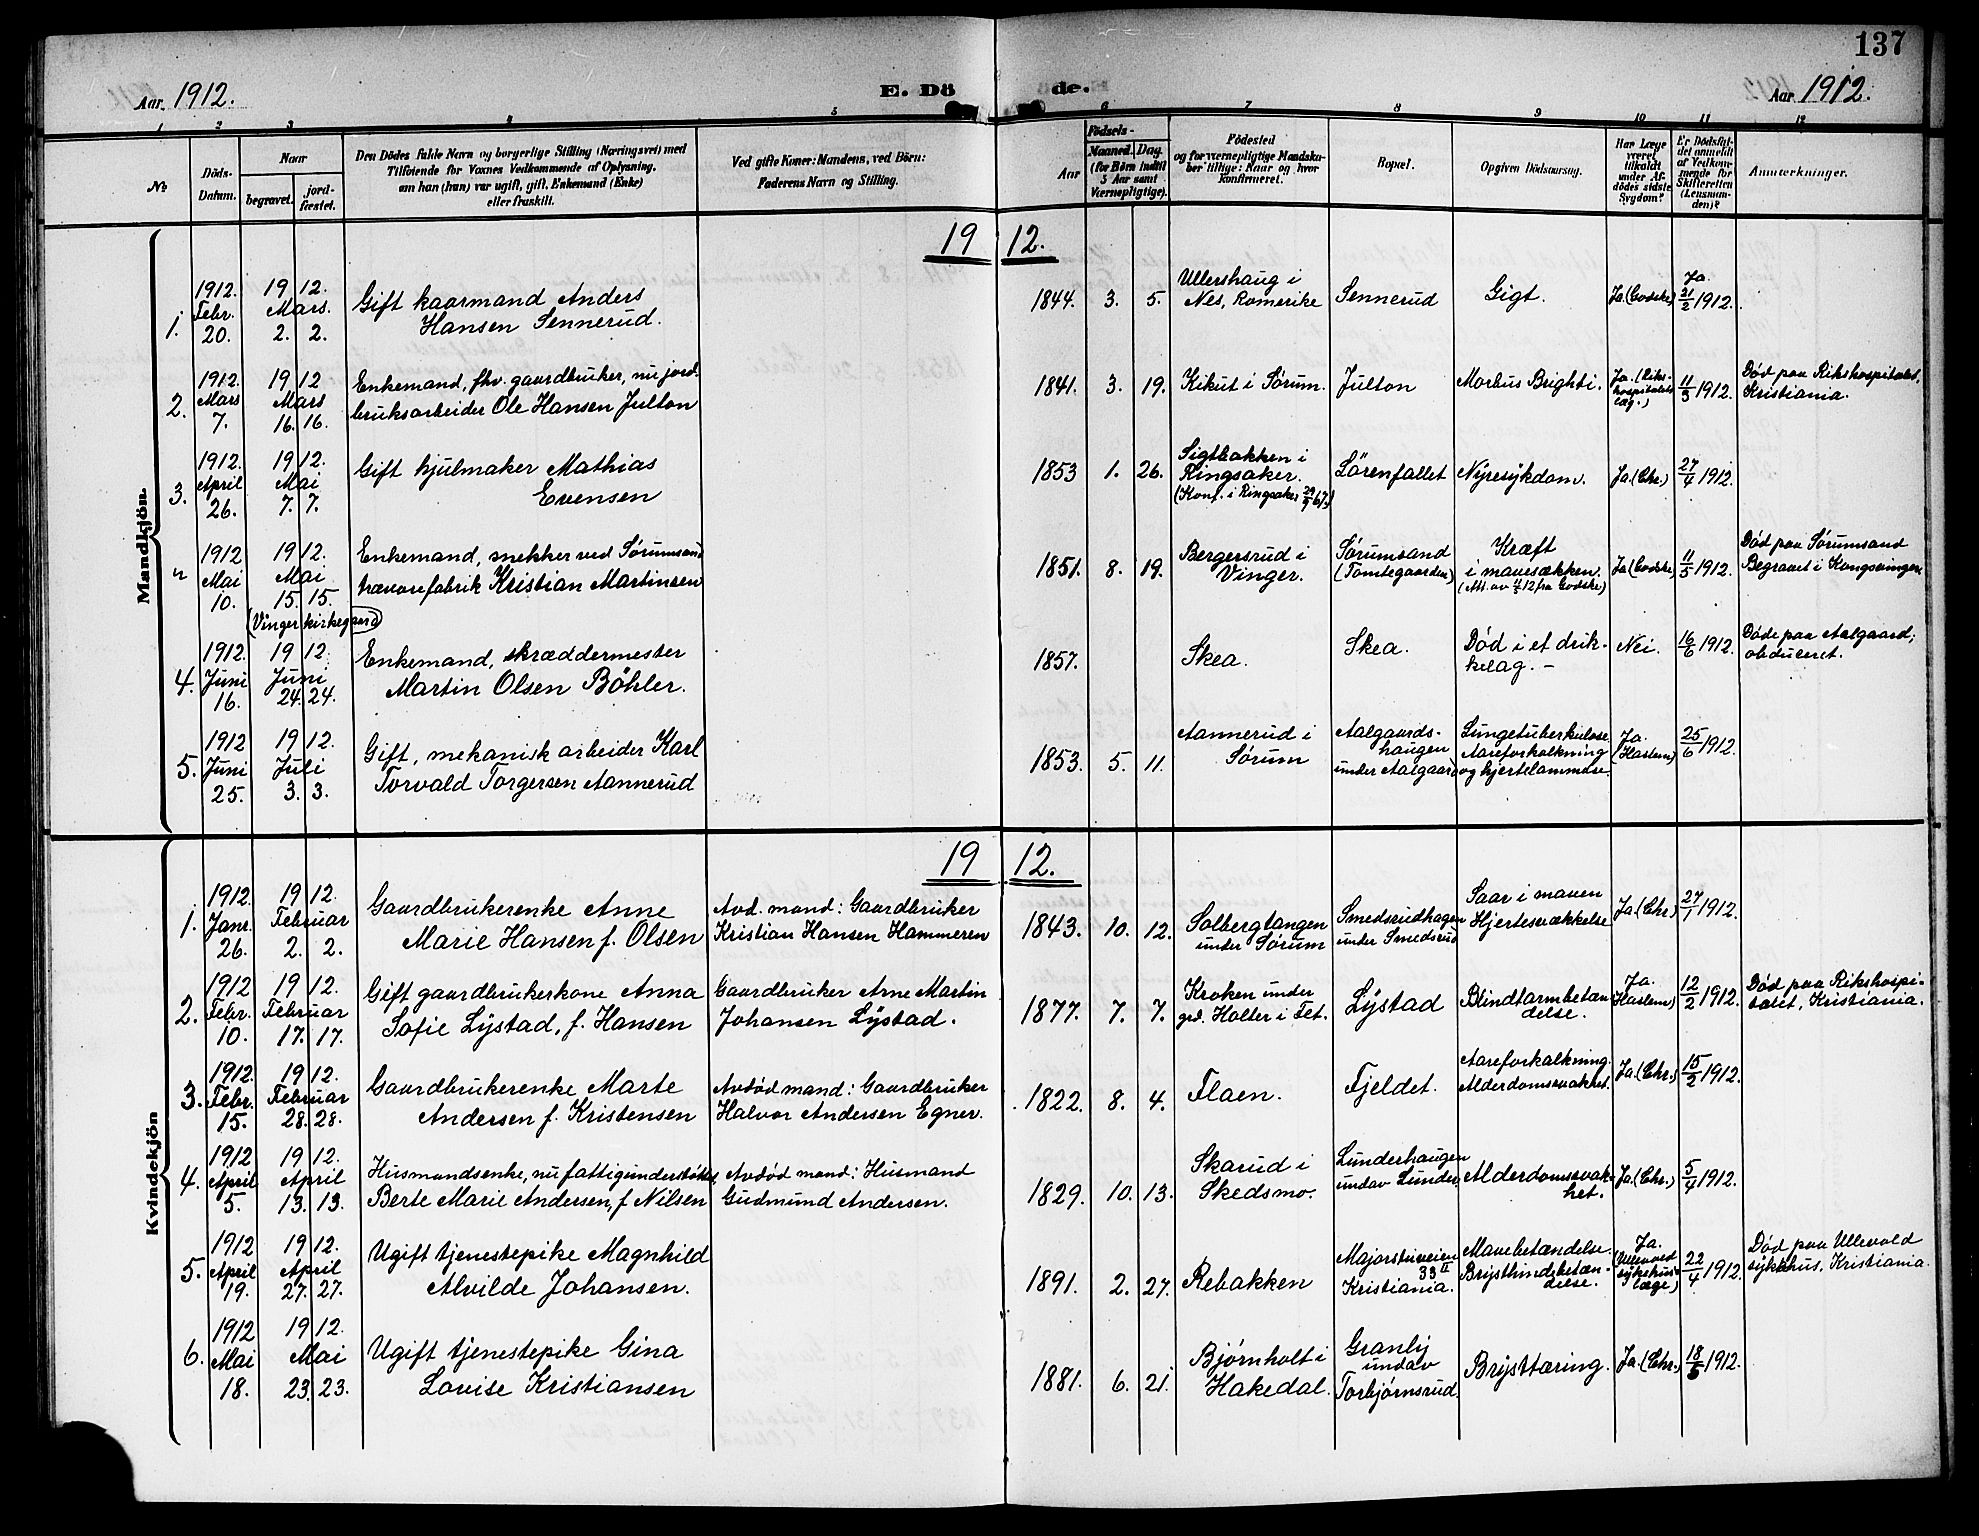 137
Aar 1912.
E. Dö de.
Aar 1912.
1 2 3 4 5 6 7 8 9 10 11 12
№
Döds-
Datum.
Naar
begravet.
jord-
fæstet.
Den Dödes fulde Navn og borgerlige Stilling (Næringsvei) med
Tilföiende for Voxnes Vedkommende af Oplysning,
om han (hun) var ugift, gift, Enkemand (Enke)
eller fraskilt.
Ved gifte Koner: Mandens, ved Börn:
Faderens Navn og Stilling.
Födsels-
Aar
Maaned. Dag
(for Börn indtil
5 Aar samt
Værnepligtige).
Födested
og for værnepligtige Mandska-
ber tillige: Naar og hvor
konfirmeret.
Bopæl.
Opgiven Dödsaarsag.
Har Læge
været
tilkaldt
under Af-
dödes sidste
Sygdom?
Er Dödsfal-
det anmeldt
af Vedkom-
mende for
Skifteretten
(Lensman-
den)?
Anmærkninger.
Mandkjön.
19 12.
1. 1912. Febr. 20.
19 12. Mars. 2. 2.
Gift kaarmand Anders
Hansen Sennerud.
1844. 3. 5.
Ullershaug i
Nes, Romerike
Sennerud
Gigt.
Ja (Godske)
Ja. 21/2 1912.
2. 1912. Mars 7.
19 12 Mars 16. 16.
Enkemand, fhv. gaardbruker, nu jord-
bruksarbeider Ole Hansen Julton
1841. 3. 19.
Kikut i Sørum.
Julton
Morbus Brighti.
Ja. (Riks-
hospitalets
læg.)
11/3 1912.
Død paa Rikshospitalet,
Kristiania.
3. 1912. April 26.
19 12. Mai 7. 7.
Gift hjulmaker Mathias
Evensen
1853 1. 26.
Sigtbakken i
Ringsaker.
(Konf. i Ringsaker 29/9 67.)
Lörenfallet
Nyresykdom.
Ja. (Chr.)
27/4 1912.
" 1912 Mai 10.
19 12. Mai 15. 15.
(Vinger kirkegaard)
Enkemand, snekker ved Sørumsand
trævarefabrik Kristian Martinsen
1851. 8. 19.
Bergersrud i
Vinger.
Sørumsand
(Tomtegaarden)
Kræft
i mavesækken.
(Att. av 11/5 12 fra Godske)
Ja (Godske)
11/5 1912.
Død paa Sørumsand
Begravet i Kongsvinger
4. 1912. Juni 16.
19 12. Juni 24. 24.
Enkemand, skræddermester
Martin Olsen Bøhler.
1857.
Skea.
Skea.
Död i et drik-
kelag. -
Nei.
16/6 1912.
Døde paa Aalgaard;
obduceret.
5. 1912 Juni 25.
19 12. Juli 3. 3.
Gift, mekanisk arbeider Karl
Torvald Torgersen Aannerud
1853. 5. 11.
Aannerud i
Sørum
Aalgaards-
haugen
under Aalgaard
Lungetuberkulose
Aareforkalkning
og hjertelammelse.
Ja.
(Haslem)
25/6 1912.
Kvindekjön
19 12.
1. 1912. Janr. 26.
19 12. Februar 2. 2.
Gaardbrukerenke Anne
Marie Hansen f. Olsen
Avd. mand: Gaardbruker
Kristian Hansen Hammeren
1843. 10. 12.
Solbergtangen
under Sørum
Smedsrudhagen
under Smedsrud
Saar i maven
Hjertesvækkelse
Ja. (Chr.)
27/1 1912.
2. 1912 Febr. 10.
19 12. Februar 17. 17.
Gift gaardbrukerkone Anna
Sofie Lystad, f. Hansen
Gaardbruker Arne Martin
Johansen Lystad.
1877. 7. 7.
Kroken under
grd. Holter i Fet.
Lystad
Blindtarmbetæn-
delse.
Ja.
(Haslem)
12/2 1912.
Død paa Rikshospi-
talet, Kristiania.
3. 1912. Febr. 15.
19 12. Februar 28. 28.
Gaardbrukerenke Marte
Andersen f. Kristensen
Avdød mand: Gaardbruker
Halvor Andersen Egner.
1822. 8. 4.
Flaen.
Fjeldet.
Aareforkalkning.
Alderdomssvakhet.
Ja. (Chr.)
15/2 1912.
4. 1912 April 5.
19 12. April 13. 13.
Husmandsenke, nu fattigunderstöttet,
Berte Marie Andersen, f. Nilsen
Avdød mand: Husmand
Gudmund Andersen.
1829. 10. 13.
Skarud i
Skedsmo.
Lunderhaugen
undav Lunder
Alderdomssvak-
het.
Ja. (Chr.)
5/4 1912.
5. 1912 April 19.
19 12. April 27. 27.
Ugift tjenestepike Magnhild
Alvilde Johansen.
1891. 2. 27.
Rebakken
Majorstuveien
33 II
Kristiania.
Mavebetændelse.
Brysthindebetæn-
delse.
Ja.
(Ullevold
sykehus
læge)
22/4 1912.
Död paa Ullevold
sykehus, Kristiania.
6. 1912 Mai 18.
19 12. Mai 23. 23.
Ugift tjenestepike Gina
Lovise Kristiansen
1881. 6. 21.
Bjørnholt i
Hakedal.
Granly
undav
Torbjørnsrud.
Brysttæring.
Ja. (Chr.)
18/5 1912.